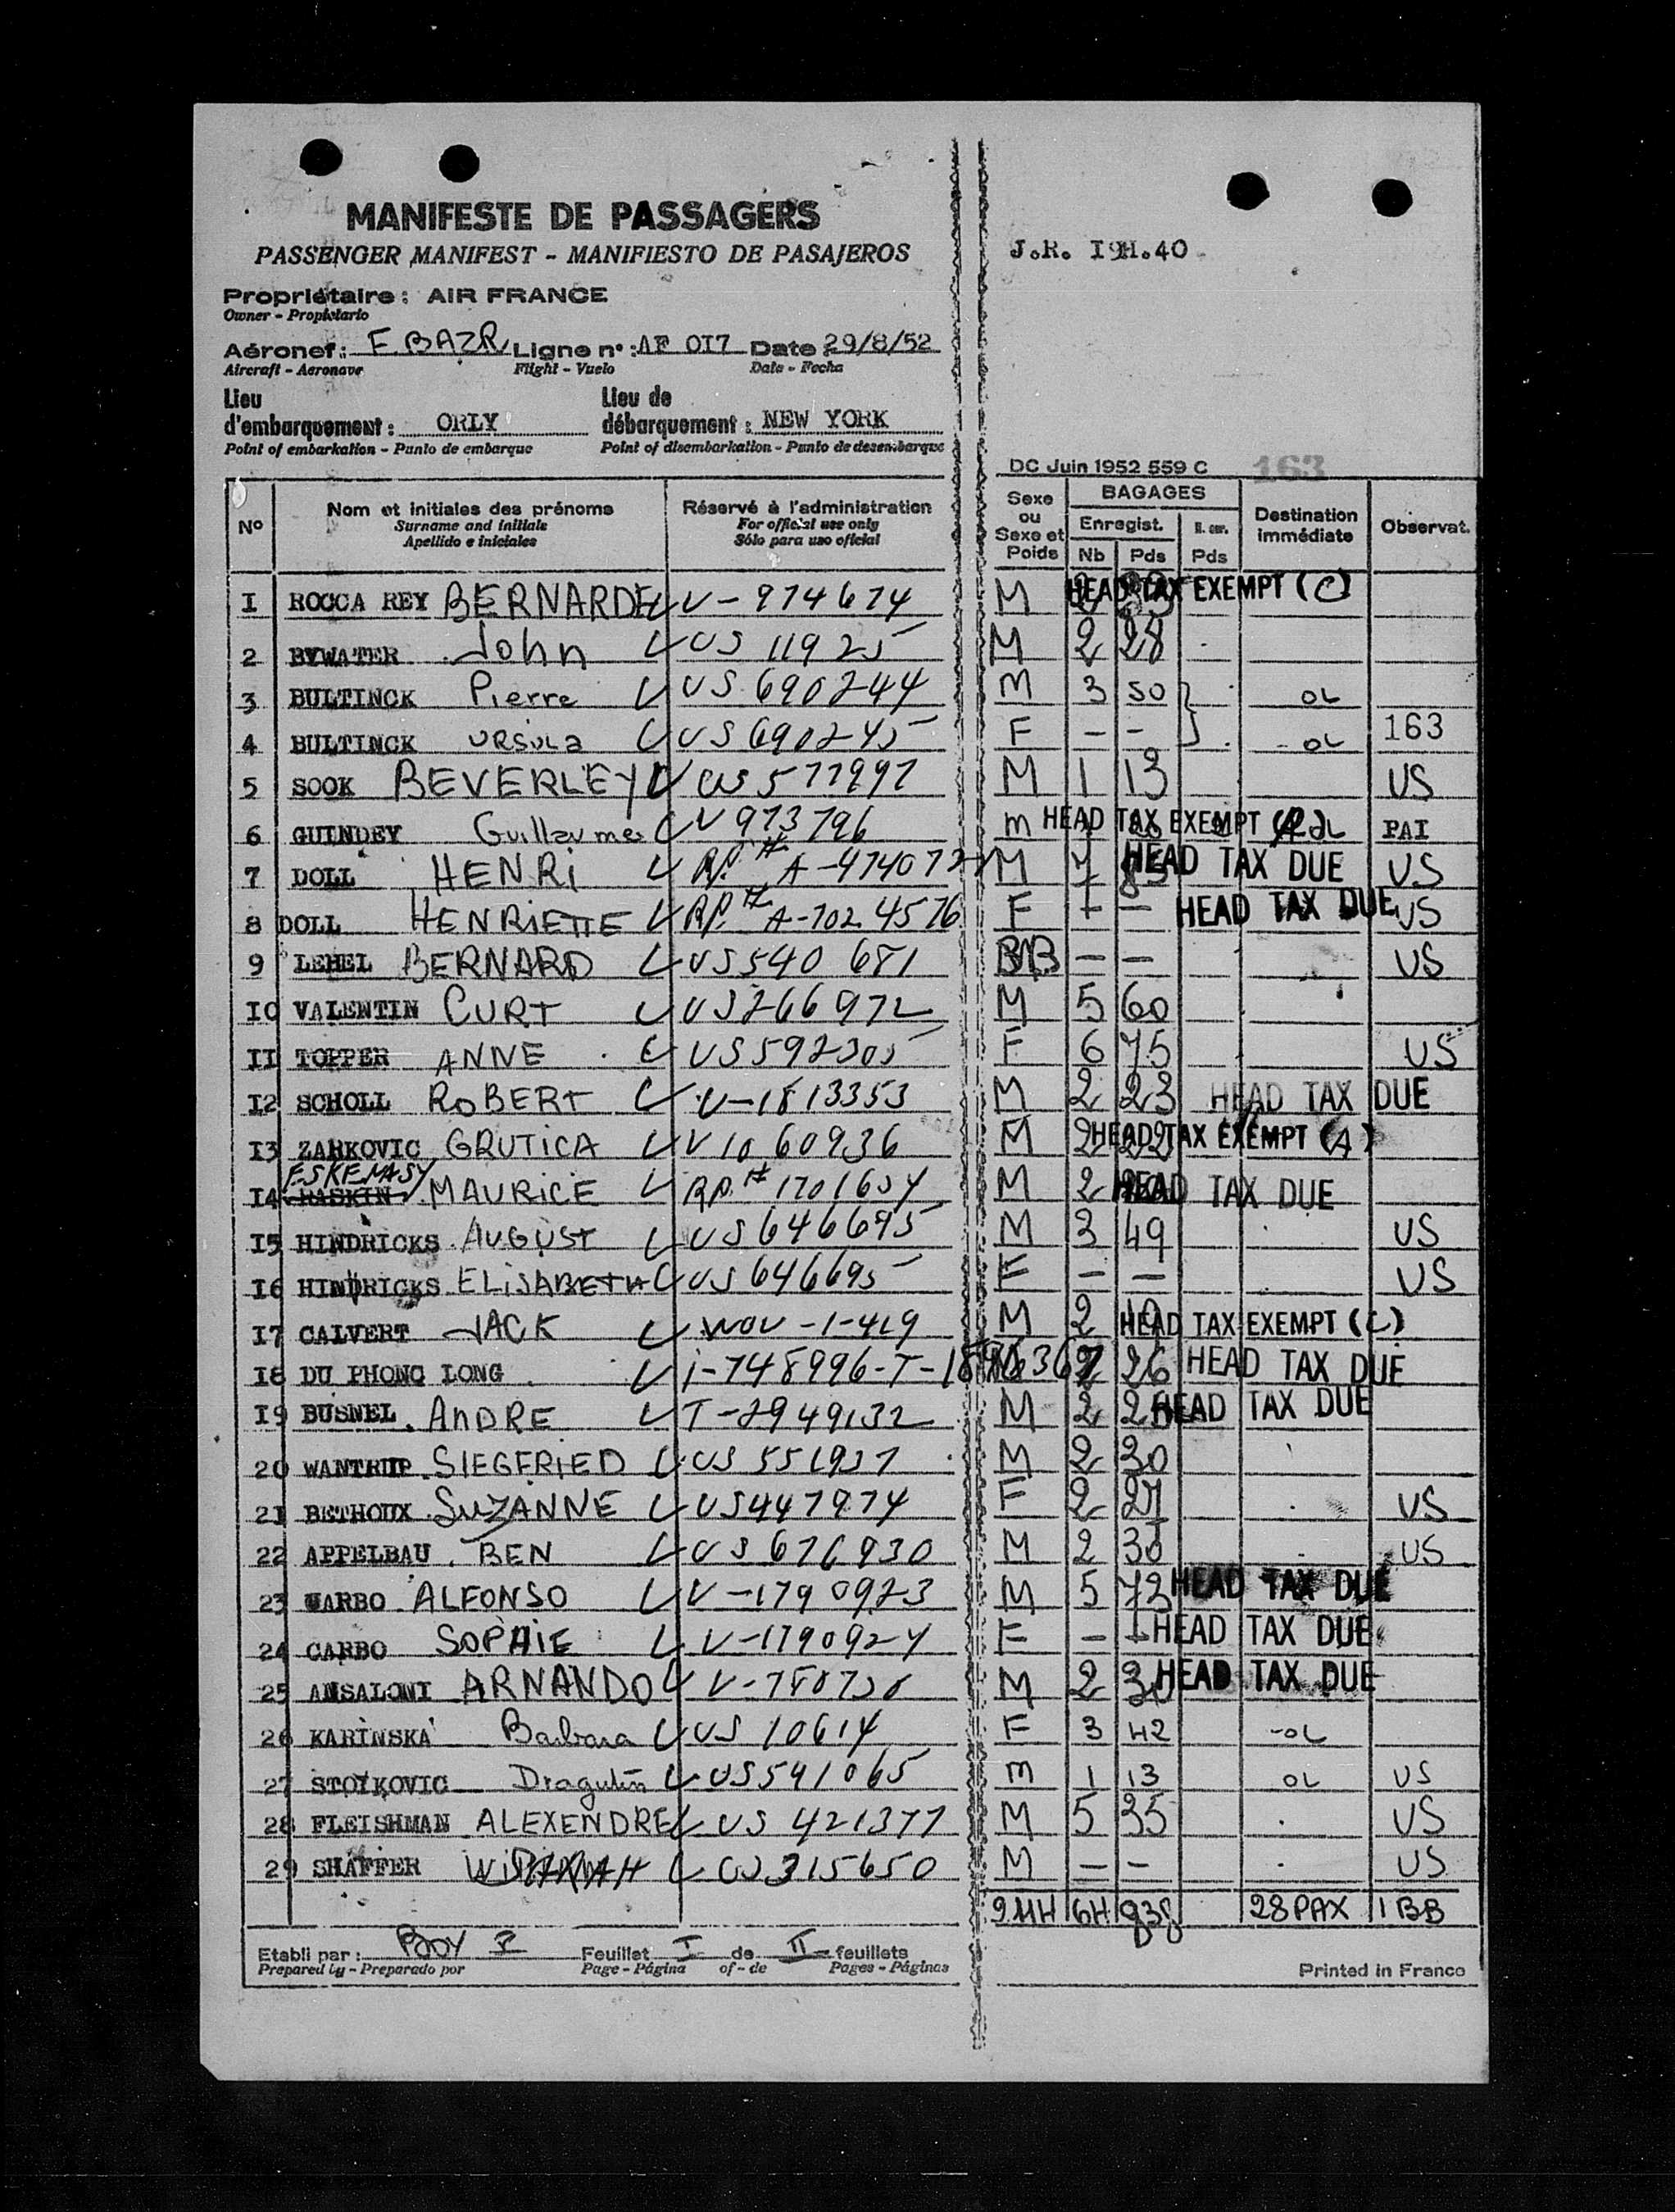 MANIFESTE DE PASSAGERS
PASSENGER MANIFEST - MANIFIESTO DE PASAJEROS
J.R. I9H.40
Propriétaire : AIR FRANCE
Owner - Propietario
Aéronef : F.BAZR Ligne n° : AF OI7 Date : 29/8/52
Aircraft - Aeronave Flight - Vuelo Date - Fecha
Lieu d'embarquement : ORLY Lieu de débarquement : NEW YORK
Point of embarkation - Punto de embarque Point of disembarkation - Punto de desembarque
DC Juin 1952 559 C 163
N° Nom et initiales des prénoms Réservé à l'administration Sexe ou Sexe et Poids BAGAGES Enregist. Nb Pds Pds Destination immédiate Observat.
Surname and initials For official use only
Apellido e iniciales Sólo para uso oficial
I ROCCA REY BERNARDE V-974674 M HEAD TAX EXEMPT (C)
2 BYWATER John US 11925 M 2 28
3 BULTINCK Pierre US 690244 M 3 50 OL
4 BULTINCK URSULA US 690245 F - - OL 163
5 SOOK BEVERLEY US 577997 M 1 13 US
6 GUINDEY Guillaume V 973796 m HEAD TAX EXEMPT PAI
7 DOLL HENRI RP. # M HEAD TAX DUE US
8 DOLL HENRIETTE RP. # A-7024576 F - - HEAD TAX DUE US
9 LEHEL BERNARD US 540 681 BB - - US
IO VALENTIN CURT US 266972 M 5 60
II TOPPER ANNE US 592305 F 6 75 US
I2 SCHOLL ROBERT V-1813353 M 2 23 HEAD TAX DUE
I3 ZARKOVIC GRUTICA V 1060936 M 2 HEAD TAX EXEMPT (A)
I4 RASKIN ESKENASY MAURICE RP. # 1701654 M 2 HEAD TAX DUE
I5 HINDRICKS AUGUST US 646695 M 3 49 US
I6 HINDRICKS ELISABETH US 646695 F - - US
I7 CALVERT JACK M 2 HEAD TAX EXEMPT (C)
I8 DU PHONG LONG 2 26 HEAD TAX DUE
I9 BUSNEL ANDRE T-2949132 M 2 HEAD TAX DUE
20 WANTRUP SIEGFRIED US 551937 M 2 30
2I BETHOUX SUZANNE US 447974 F 2 27 US
22 APPELBAU BEN US 676930 M 2 30 US
23 CARBO ALFONSO V-1790923 M 5 72 HEAD TAX DUE
24 CARBO SOPHIE V-1790924 F - - HEAD TAX DUE
25 ANSALONI ARNANDO M 2 30 HEAD TAX DUE
26 KARINSKA Barbara US 10614 F 3 42 -OL
27 STOYKOVIC Dragutin US 541065 m 1 13 OL US
28 FLEISHMAN ALEXENDRE US 421377 M 5 35 US
29 SHAFFER US 315650 M - - US
28 PAX 1 BB
Etabli par : Feuillet I de II feuillets
Prepared by - Preparado por Page - Página of - de Pages - Páginas
Printed in France